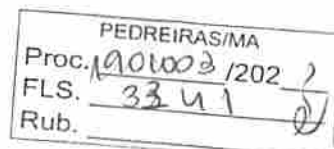 PEDREIRAS/MA
Proc. 1901003 /202
FLS. 3341
Rub.